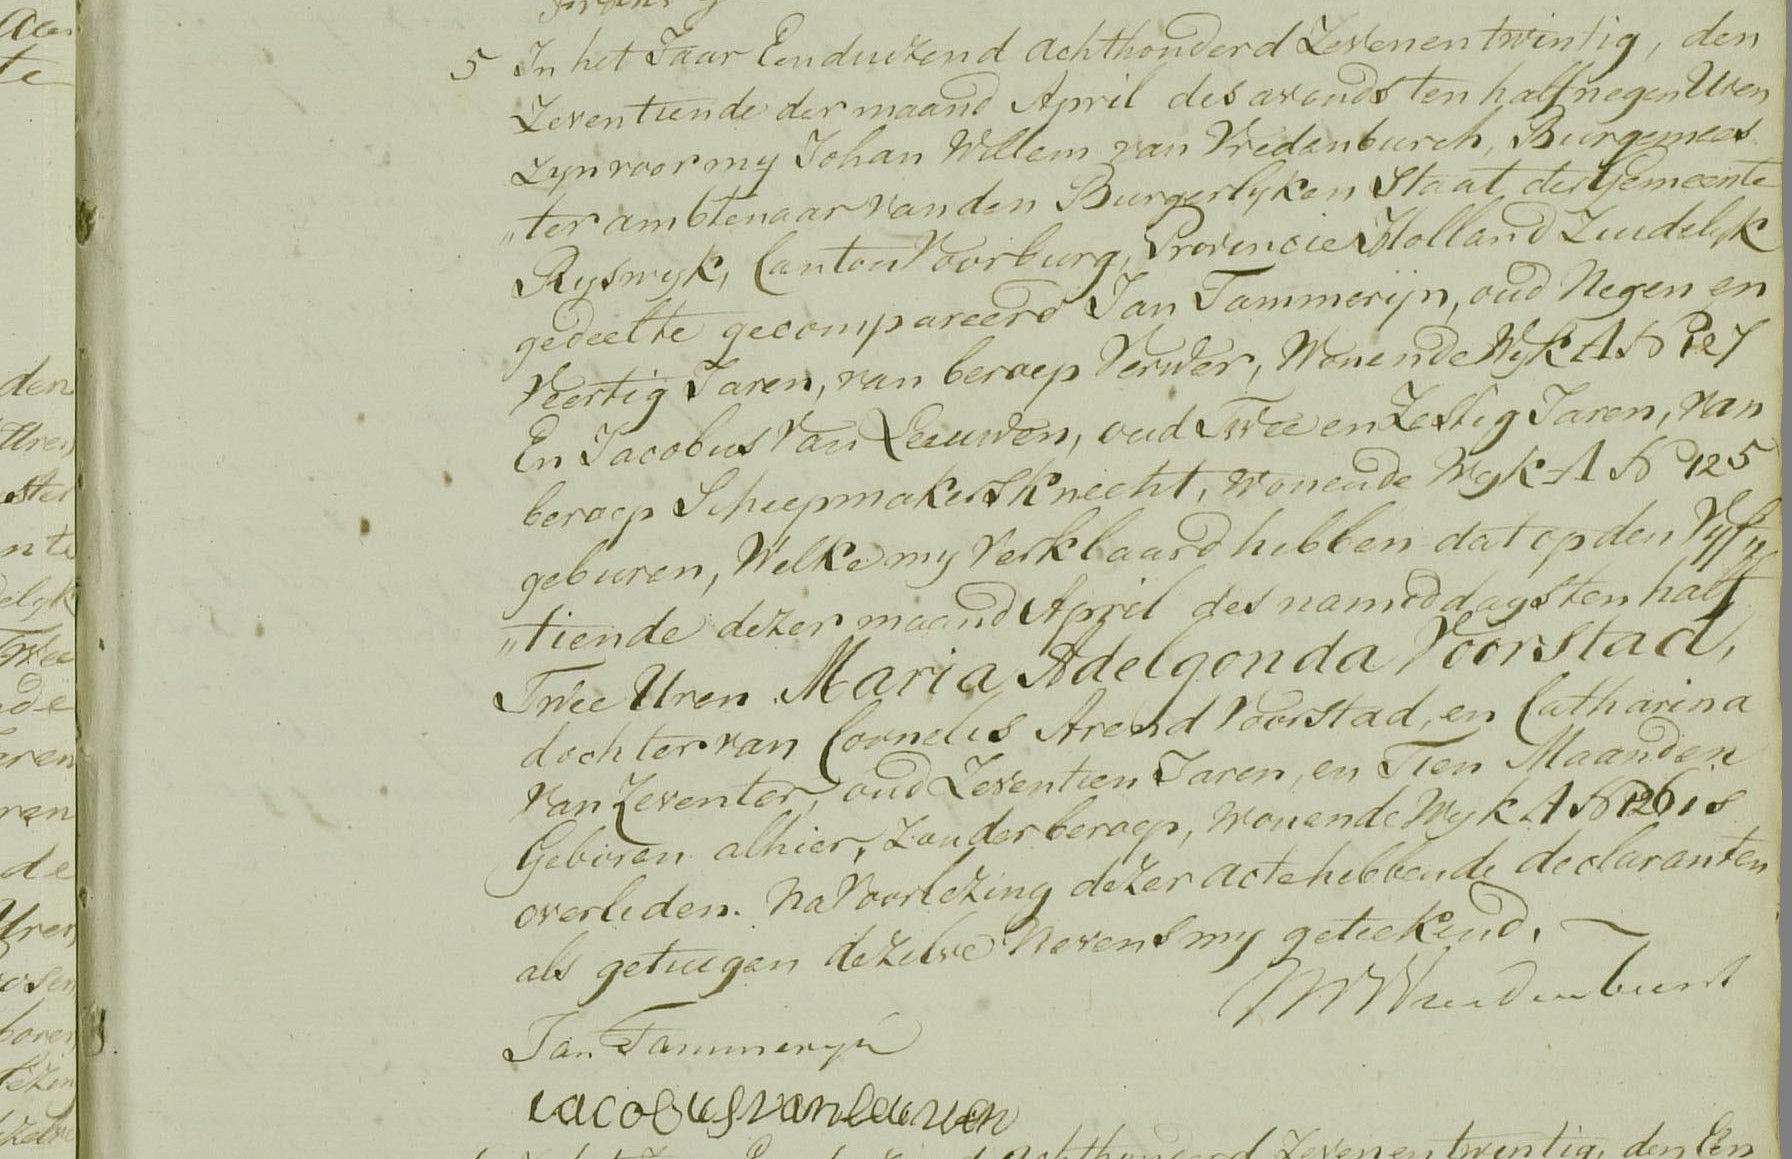 5 In het Jaar Eenduizend achthonderd Zevenentwintig, den
Zeventiende der maand April des avonds ten half negen Uren
zyn voor my Johan Willem van Vredenburch, Burgemees
„ter ambtenaar van den Burgerlyken Staat der Gemeente
Ryswyk, Canton Voorburg, Provincie Holland Zuidelyk
gedeelte gecompareerd Jan Tammerijn, oud Negen en
Veertig Jaren, van beroep Verwer, Wonende Wyk A No 127
En Jacobus Van Leeuwen, oud Twee en Zestig Jaren, van
beroep Scheepmakersknecht, wonende Wyk A No 125
geburen, Welke my Verklaard hebben dat op den Vijf„
„tiende dezer maand April des namiddags ten half
Twee Uren Maria Adelgonda Voorstad,
dochter van Cornelis Arend Voorstad, en Catharina
Van Zeventer, oud Zeventien Jaren, en Tien Maanden
Geboren alhier, Zonder beroep, wonende Wyk A No 126 is
overleden. Na Voorlezing dezer acte hebbende declaranten
als getuigen dezelve Nevens my geteekend.
Jan Tammerijn
Jacobus van leeuwen
achthonderd Zevenentwintig, den Een